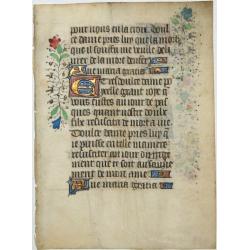 pour nous en la croix doul
ce dame pries luy que la mort
que il souffri me veulle deli
urer de la mort denfer
Aue maria gratia
Tres doulce dame po
celle grant ioie q
vous eustes au iour de pas
ques quant nostre doulz
filz resuscita de mort a uie
Doulce dame pries luy q
ie puisse en telle maniere
resusciter au iour du iuge
ment que ce soit au sauue
ment de mon ame
Aue maria gratia